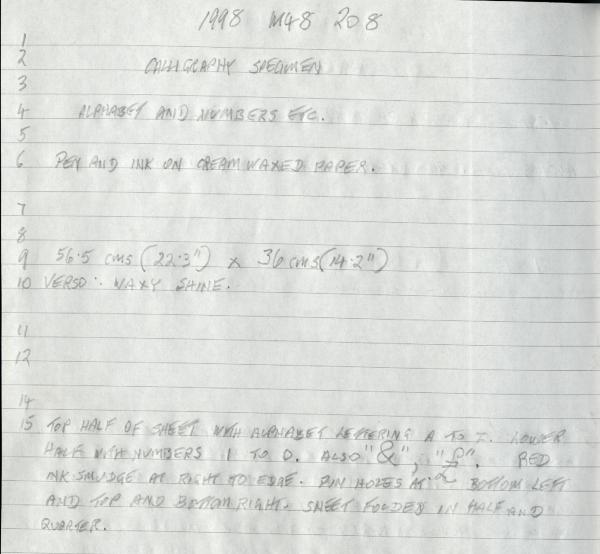 1998 M48 208
1
2 CALLIGRAPHY SPECIMEN
3
4 ALPHABET AND NUMBERS ETC.
5
6 PEN AND INK ON CREAM WAXED PAPER.
7
8
9 56.5 cms (22.3") x 36 cms (14.2")
10 VERSO: WAXY SHINE.
11
12
14
15 TOP HALF OF SHEET WITH ALPHABET LETTERING A TO Z. LOWER
HALF WITH NUMBERS 1 TO 0. ALSO "&", "£". RED
INK SMUDGE AT RIGHT TO EDGE. PIN HOLES AT BOTTOM LEFT
AND TOP AND BOTTOM RIGHT. SHEET FOLDED IN HALF AND
QUARTER.